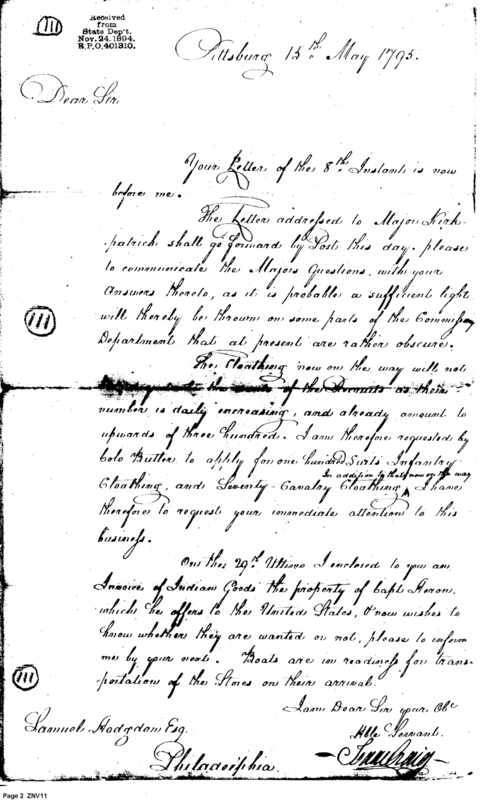 111
Received
from
State Dep't.
Nov. 24. 1894.
R.P.O. 401310.
Pittsburg 15th May 1795.
Dear Sir
Your Letter of the 8th Instant is now
before me.
The Letter addressed to Major Kirk-
patrick shall go forward by Post this day. please
to communicate the Majors Questions, with your
Answers thereto, as it is probable a sufficient light
will thereby be thrown on some parts of the Commissary
Department that at present are rather obscure.
111
The Cloathing now on the way will not
the of the Recruits as their
number is daily encreasing, and already amount to
upwards of three hundred. I am therefore requested by
Colo Butler to apply for one hundred Suits Infantry
In addition to that now on the way
Cloathing, and Seventy Cavalry Cloathing, I have
therefore to request your immediate attention to this
business.
On the 29th Ultimo I enclosed to you an
Invoice of Indian Goods the property of Capt Heron,
which he offers to the United States, & now wishes to
know whether they are wanted or not, please to inform
me by your next. Boats are in readiness for trans-
portation of the Stores on their arrival.
111
I am Dear Sir your Obt
Hble Servant
Isaac Craig
Samuel Hodgdon Esq.
Philadelphia.
Page 2 ZNV11